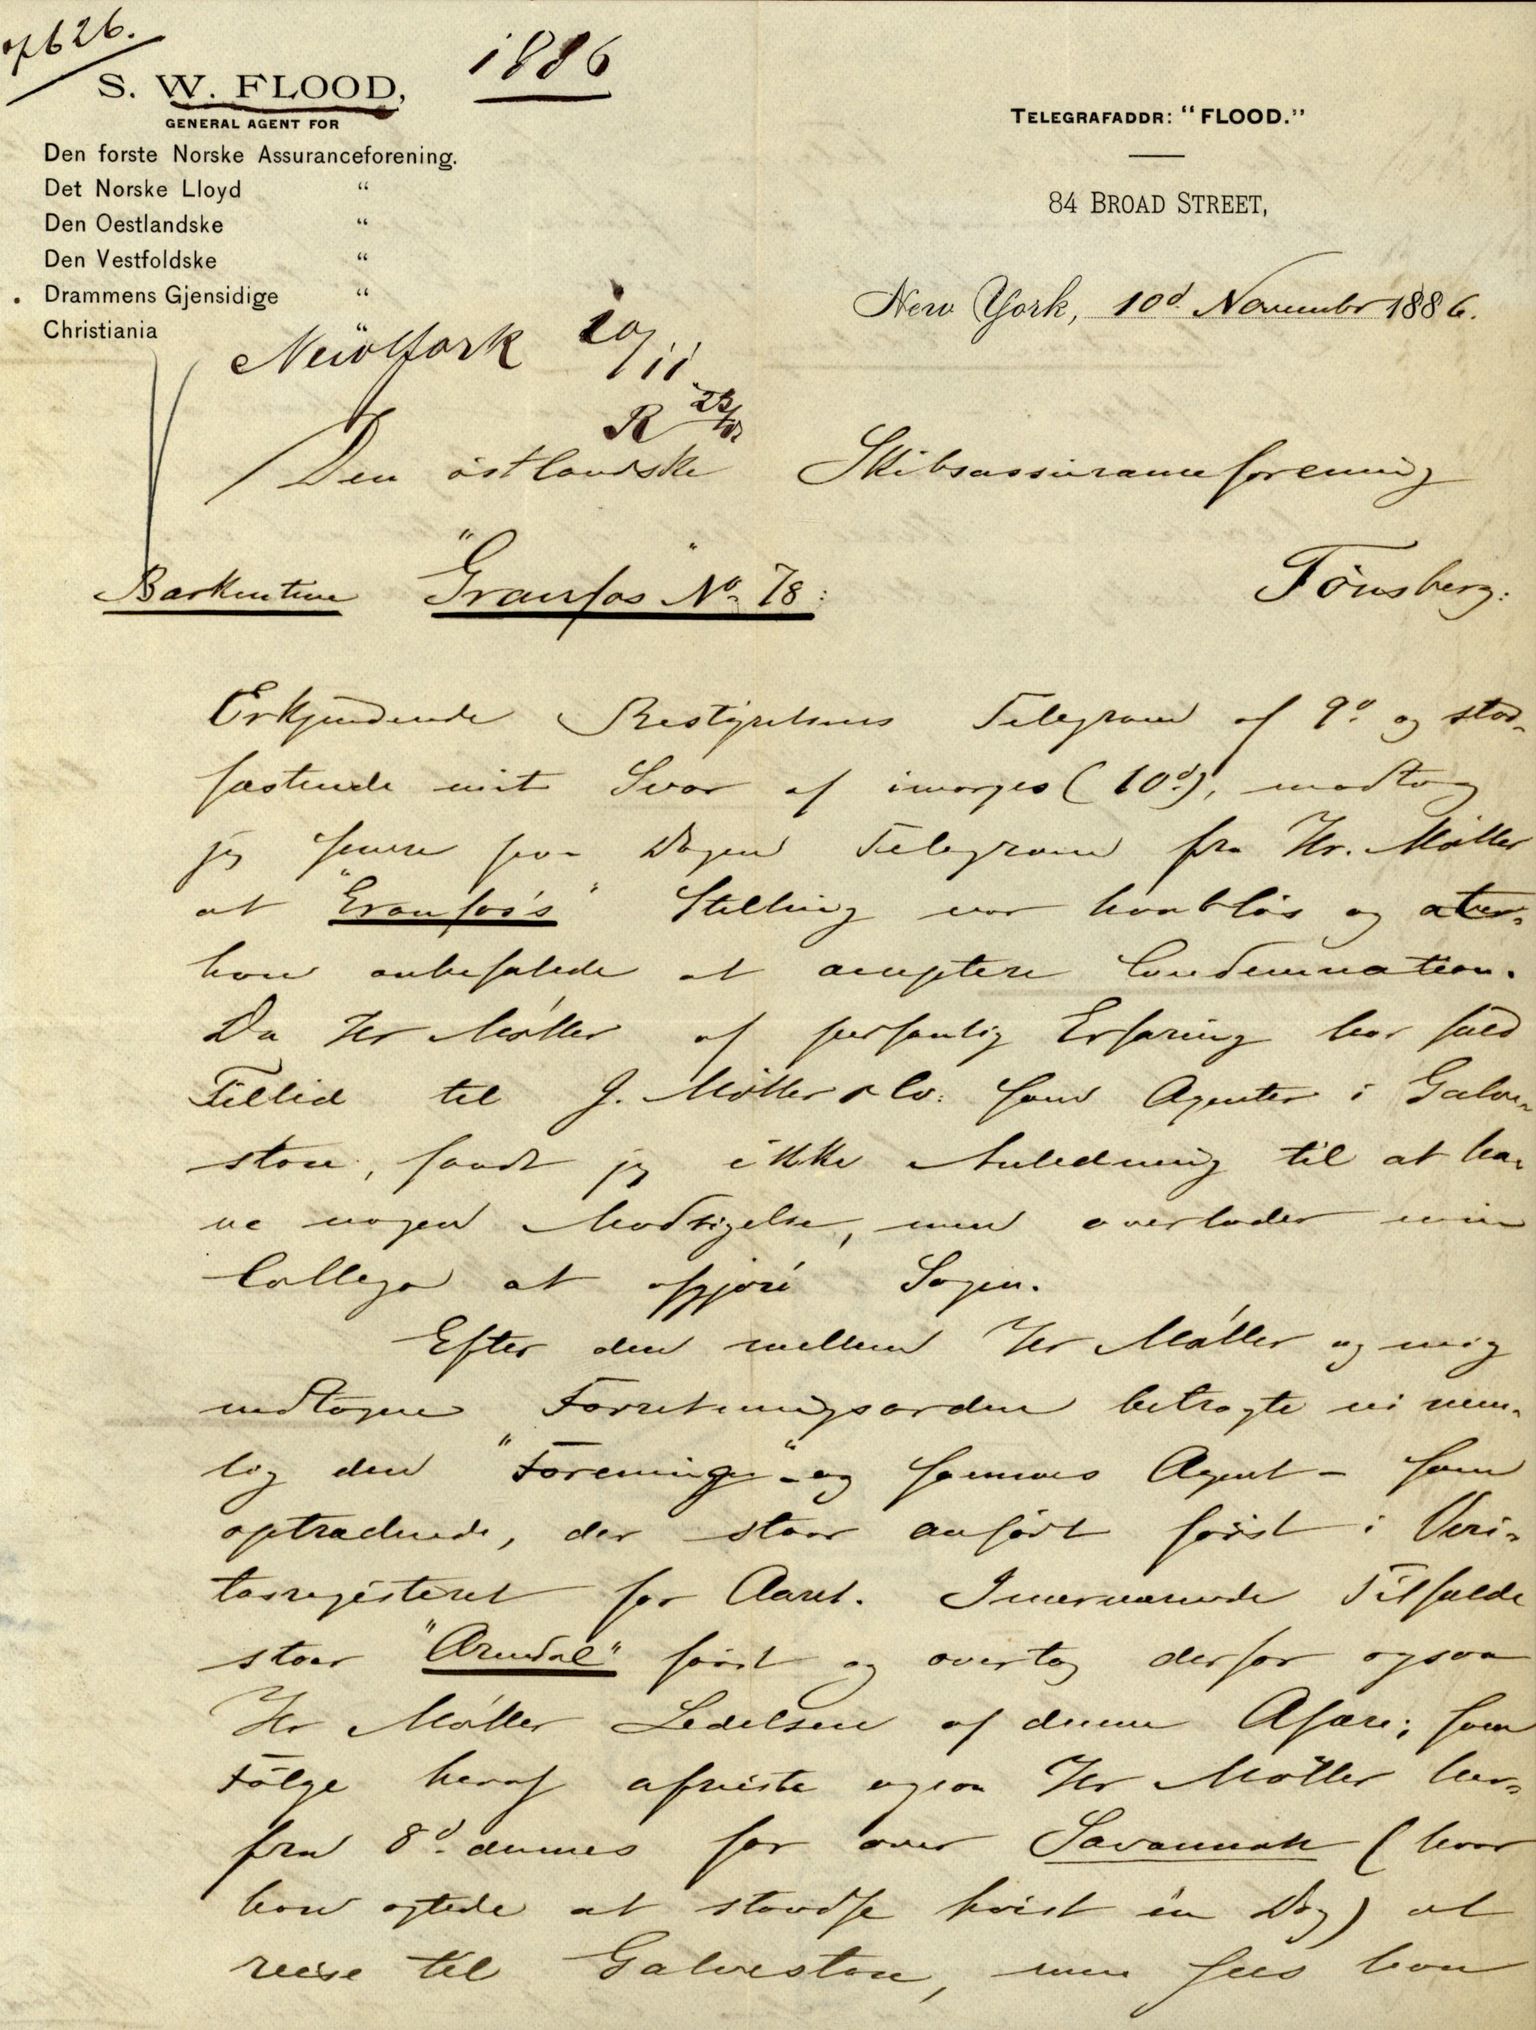 af 626.
1886
S. W. FLOOD,
GENERAL AGENT FOR
Den forste Norske Assuranceforening.
Det Norske Lloyd "
Den Oestlandske "
Den Vestfoldske "
Drammens Gjensidige "
Christiania
TELEGRAFADDR: "FLOOD."
84 BROAD STREET,
New York, 10d November 1886.
New York 10/11
R 23/11
Den östlandske Skibsassuranceforening
Tönsberg:
Barkentine "Granfos" No 78:
Erkjendende Bestyrelsens Telegram af 9d og stad-
fæstende mit Svar af imorges (10d), modtog
jeg senere paa Dagen Telegram fra Hr. Möller
at "Granfos's" Stilling var haablös og
han anbefalede at acceptere Condemnation.
Da Hr Möller af personlig Erfaring har fuld
Tillid til J. Möller & Co: som Agenter i Galve-
ston, fandt jeg ikke Anledning til at ha-
ve nogen Modsigelse, men overlader min
Collega at afgjöre Sagen.
Efter den mellem Hr Möller og mig
vedtagne Forretningsorden betragte vi nem-
lig den "Forening" - og sammes Agent - som
optrædende, der staar anfört först i Veri-
tasregisteret for Aaret. I nærværende Tilfælde
staar "Arendal" först og overtog derfor ogsaa
Hr Möller Ledelsen af denne Afære; som
Fölge heraf afreiste ogsaa Hr Möller her-
fra 8d dennes for over Savannah (hvor
han agtede at standse höist én Dag) at
reise til Galveston, men sees han